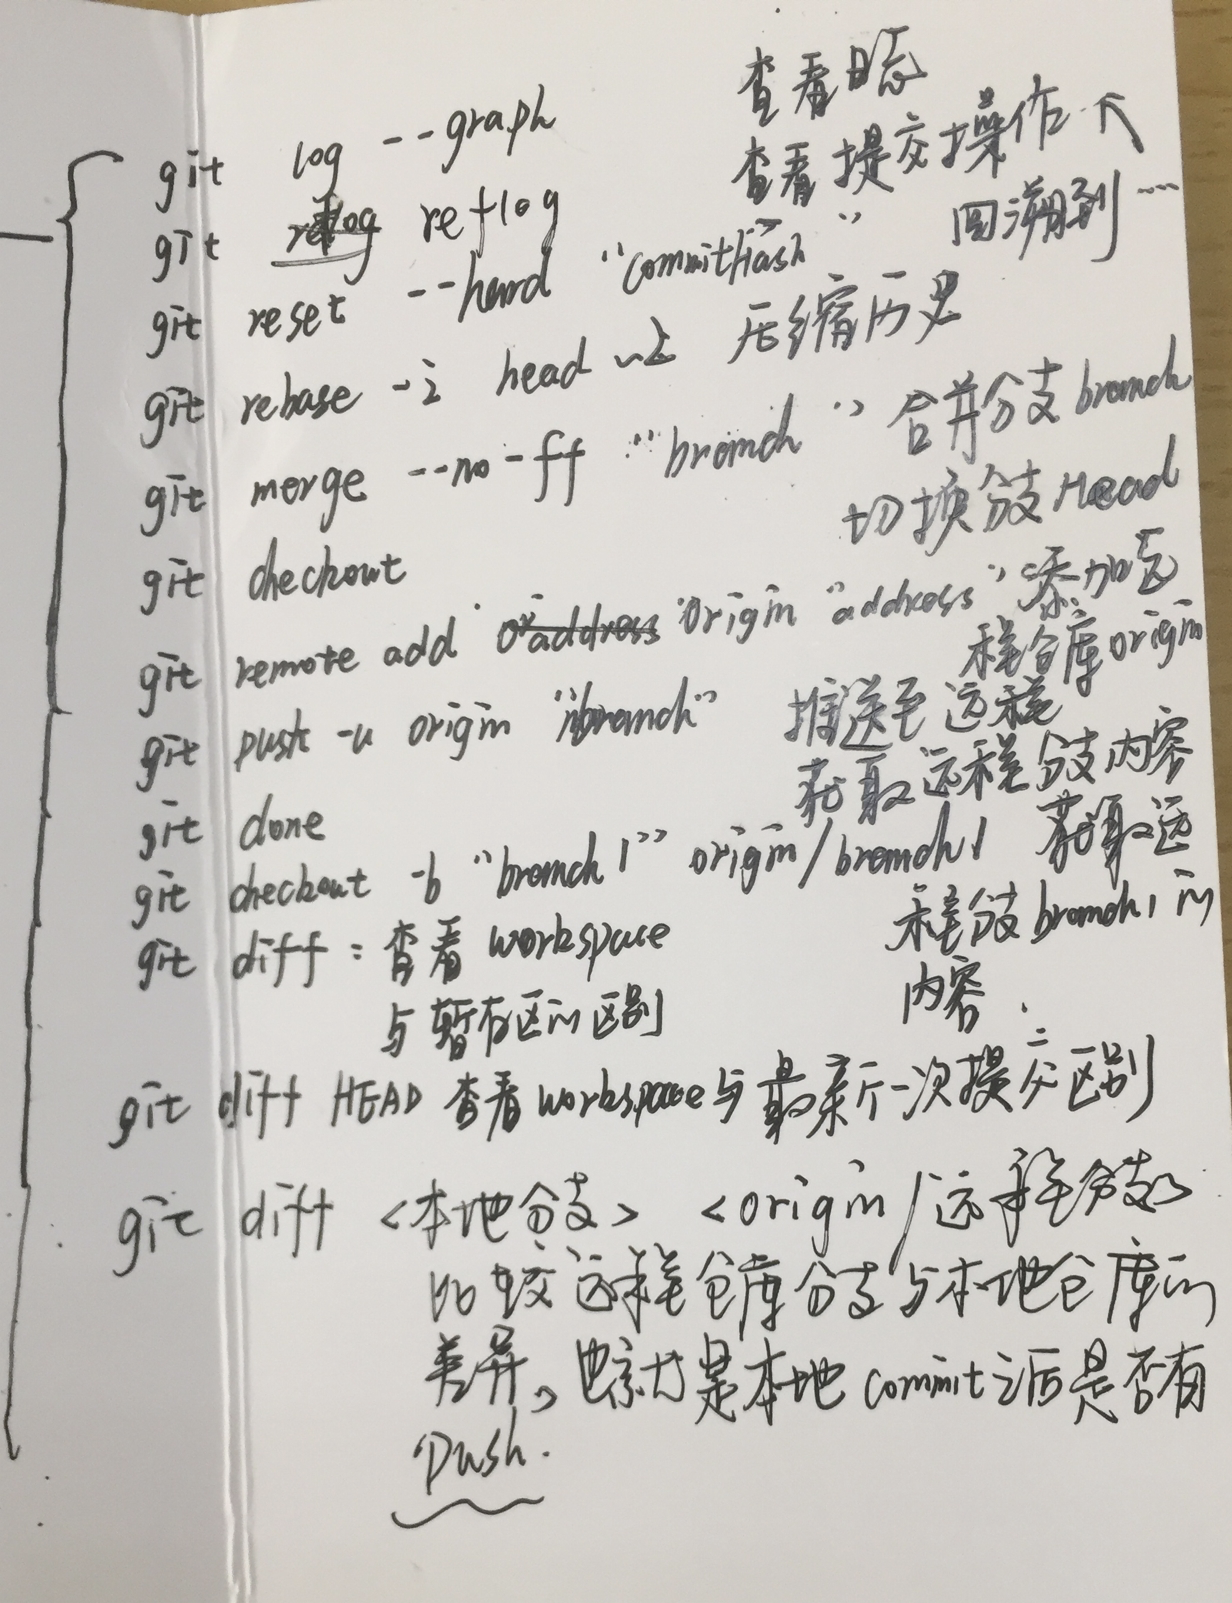 git log --graph 查看日志
git reflog 查看提交操作
git reset --hard "commitHash" 回溯到……
git rebase -i head~2 压缩历史
git merge --no-ff "branch" 合并分支branch
git checkout 切换分支Head
git remote add origin "address" 添加远
程仓库origin
git push -u origin "branch" 推送至远程
git clone 获取远程分支内容
git checkout -b "branch1" origin/branch1 获取远
程分支branch1的
内容.
git diff：查看workspace
与暂存区的区别
git diff HEAD 查看workspace与最新一次提交区别
git diff <本地分支> <origin/远程分支>
比较远程仓库分支与本地仓库的
差异、也就是本地commit之后是否有
push.